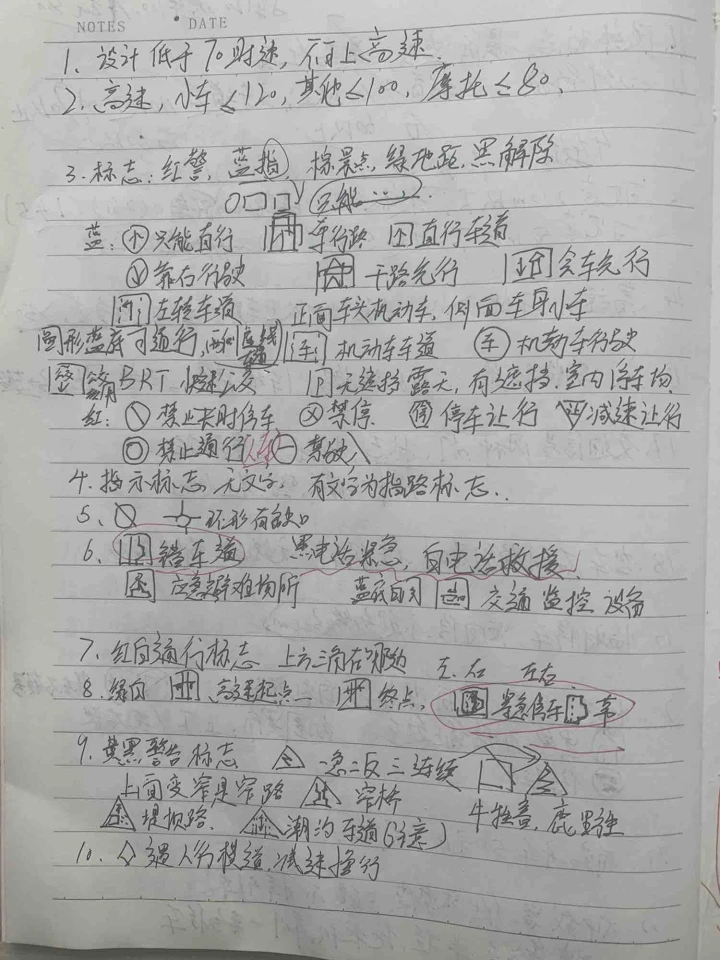 NOTES DATE
1、设计低于70时速，不可上高速.
2、高速，小车≤120，其他≤100，摩托≤80、
3、标志：红警，蓝指，棕景点，绿地距，黑解除
只能……
蓝：只能直行 车行路 直行车道
靠右行驶 干路先行 会车先行
左转车道 正面车头机动车，侧面车身小车
圆形蓝底可通行， 机动车车道 机动车行驶
BRT 快速公交 P 无遮挡露天，有遮挡，室内停车场
红：禁止长时停车 禁停 停车让行 减速让行
禁止通行 驾驶
4、指示标志无文字，有文字为指路标志..
5、 环形有缺口
6、错车道 黑电话紧急，白电话救援！
应急避难场所 蓝底白 交通监控设备
7、红白通行标志 上方三角在哪边 左、右 左右
8、绿白 高速起点— 终点， 紧急停车 带
9、黄黑警告标志 一急二反三连续
上面变窄是窄路 窄桥 牛牲畜，鹿野生
堤坝路、 潮汐车道(注意)
10、◇遇人行横道，减速慢行